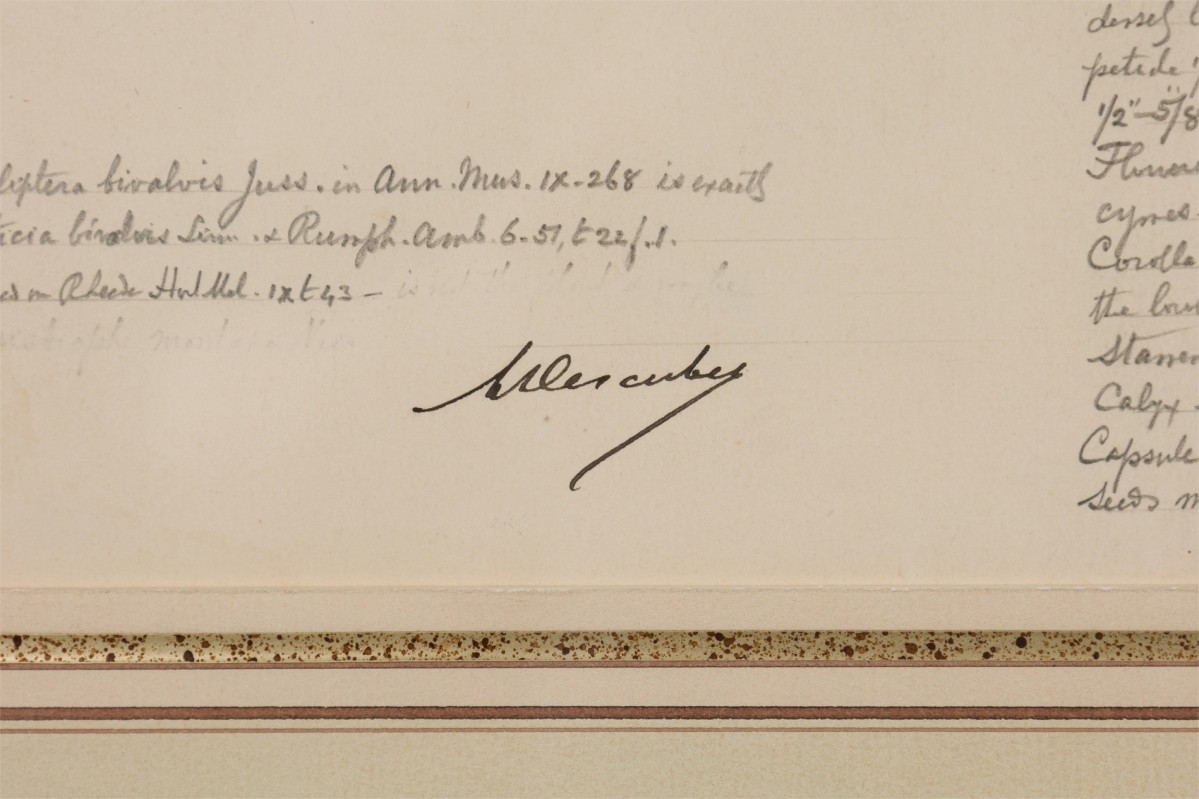 liptera bivalvis Juss. in Ann. Mus. IX-268 is exactly
ticia bivalvis Linn. & Rumph. Amb. 6-51, t 22 f. 1.
on Rheede Hort Mal. IX t 43 - is not the plant
montana Nees
densely
petiole
1/2"-5/8
Flowers
cymes
Corolla
the low
Stamen
Calyx
Capsule
seeds m